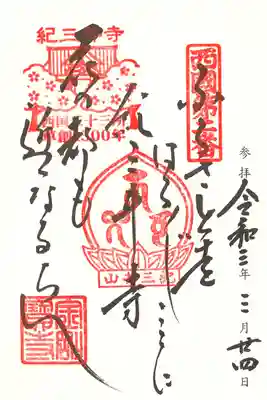 参拝 令和三年三月廿四日
西国第二番
ふるさとを
はるばるここに
紀三井寺
花の都も
近くなるらん
紀三井寺
西国三十三所
草創1300年
紀三井山